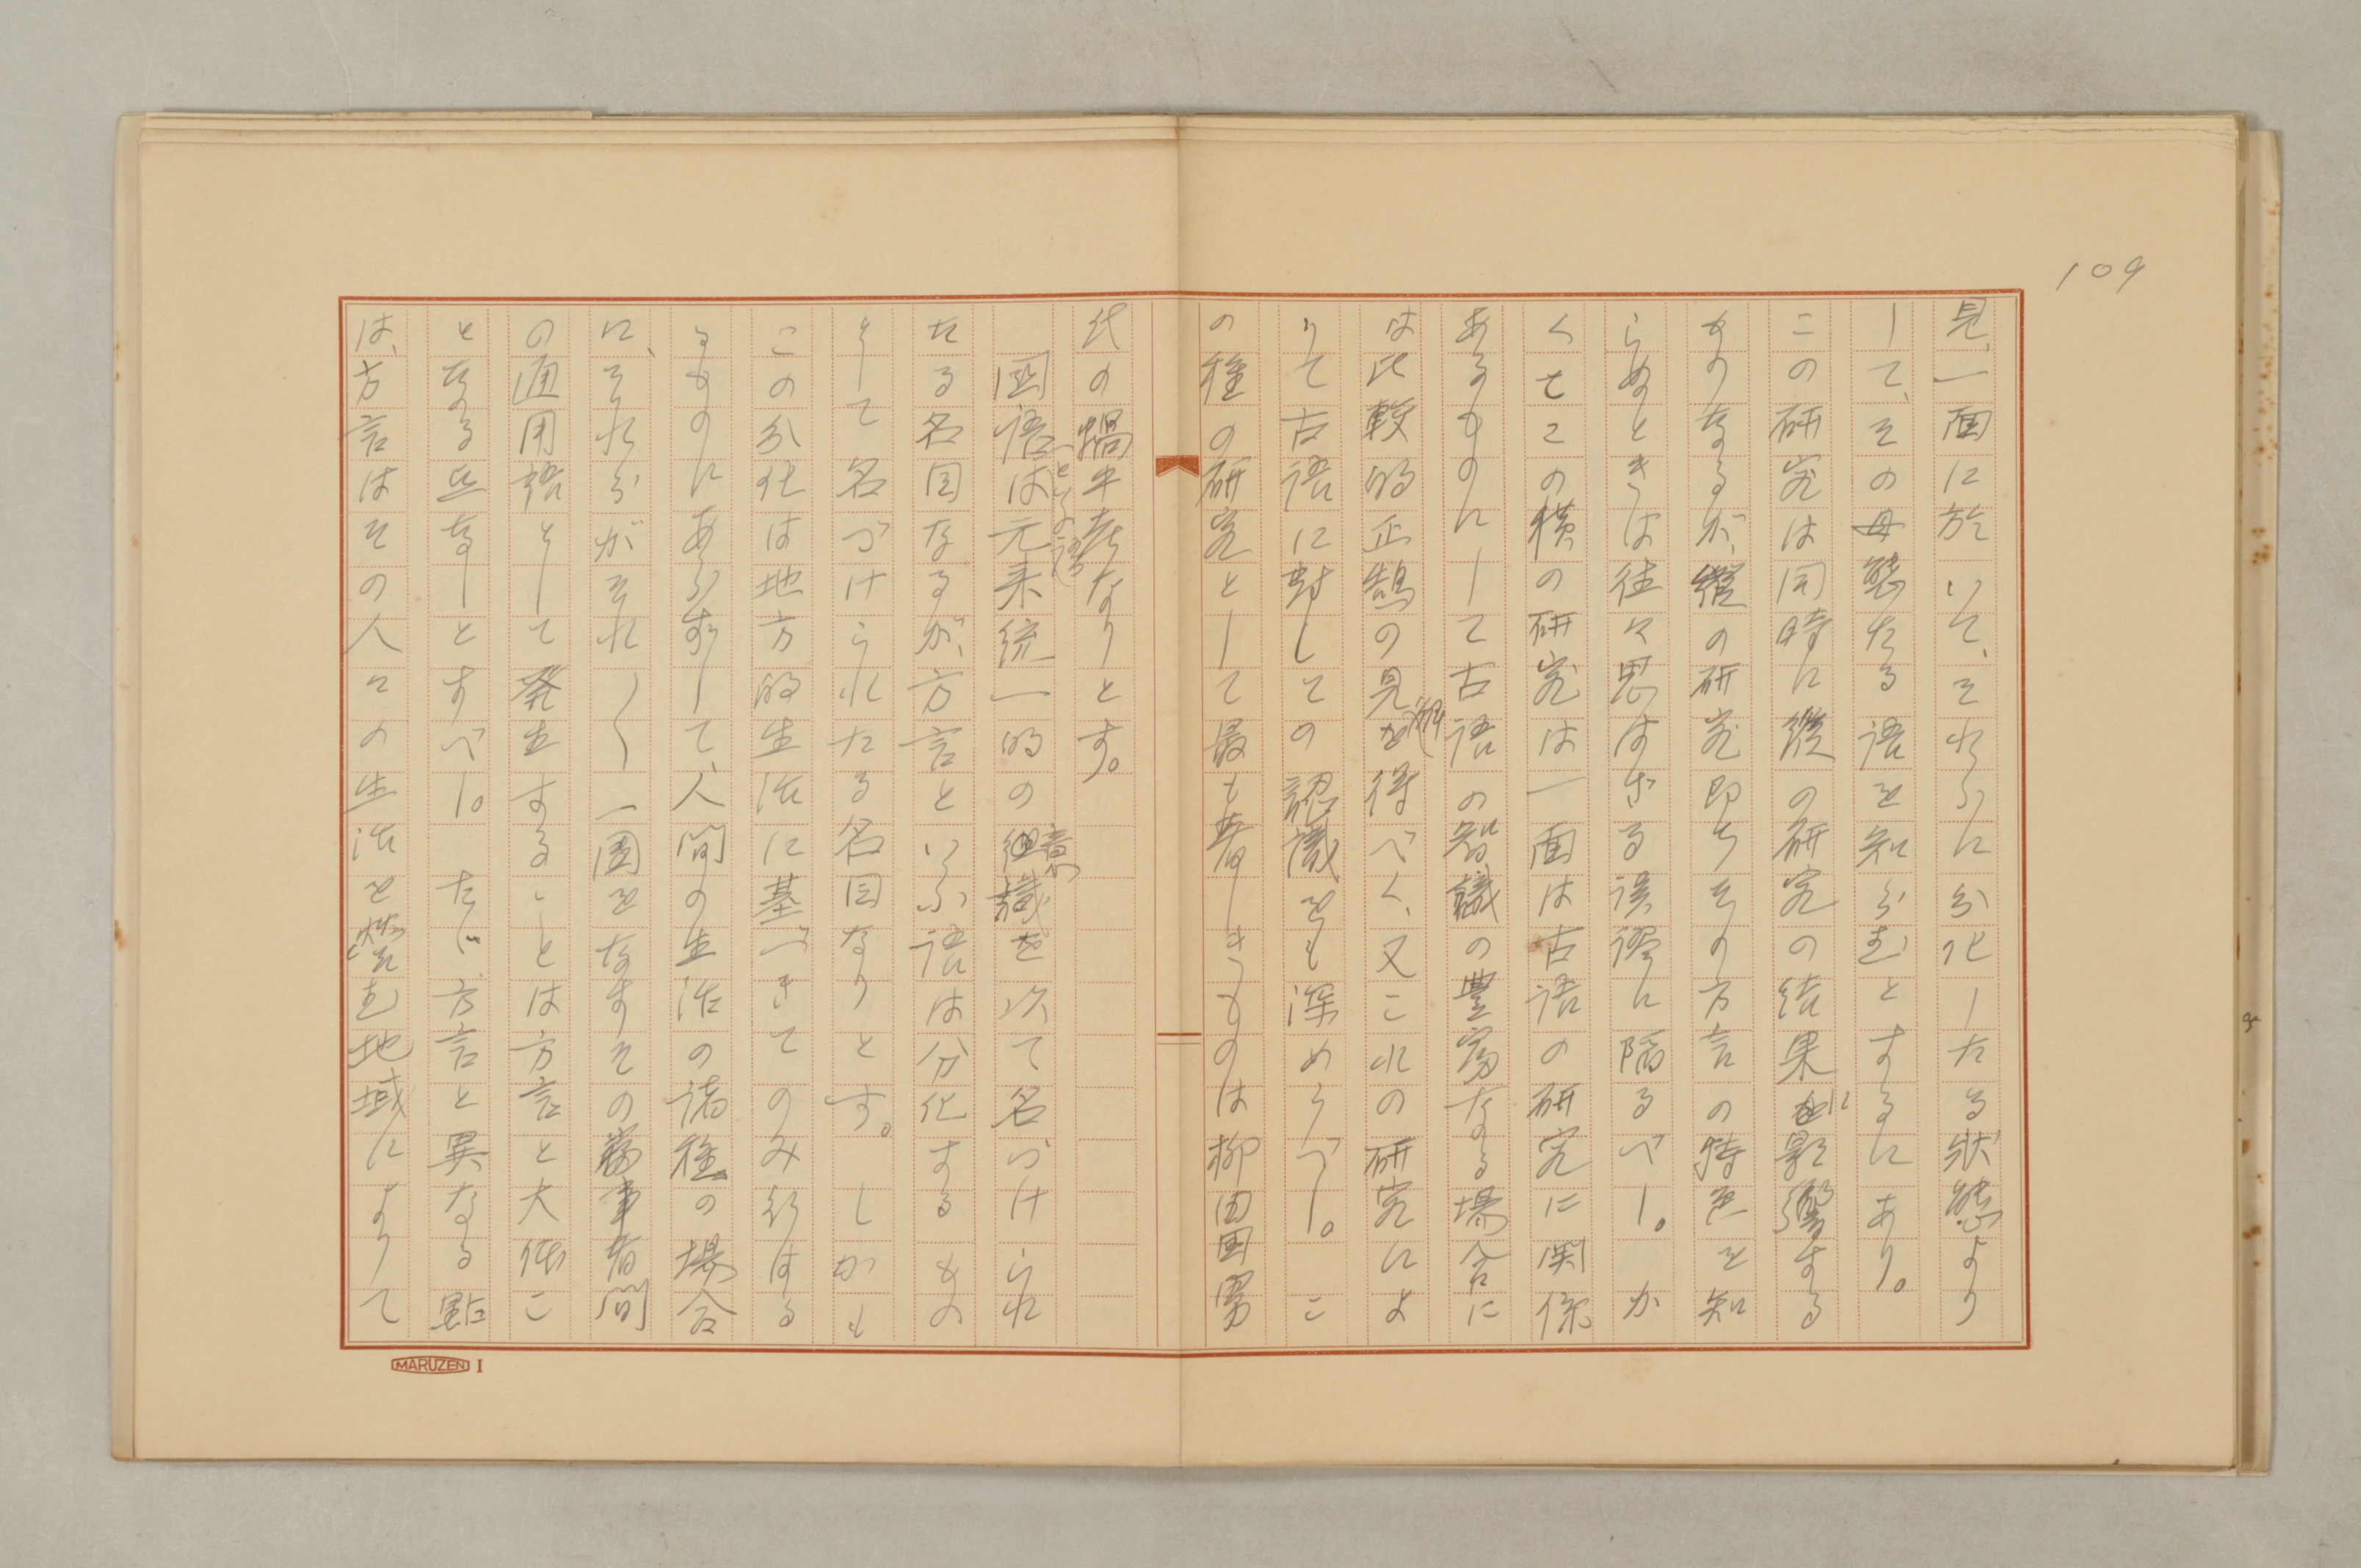 109
見、一面に於いて、それらに分化したる状態より
して、その母懇たる語を知らむとするにあり。
この研究は同時に縦の研究の結果に影響する
ものなるが、縦の研究即ちその方言の特色を知
らぬときは往々思はざる誤謬に陥るべし。か
くてこの横の研究は一面は古語の研究に関係
あるものにして古語の智識の豊富なる場合に
は比較的正鵠の見解を得べく、又これの研究によ
りて古語に對しての認識をも深めうべし。こ
の種の研究として最も著しきものは柳田国男
氏の蝸牛考なりとす。
国語(といふ語)は元来統一的の意識を以て名づけられ
たる名目なるが、方言といふ語は分化するもの
として名づけられたる名目なりとす。しかも
この分化は地方的生活に基づきてのみ行はる
るものにあらずして、人間の生活の諸種の場合
に、それらがそれ〳〵一團をなすその當事者間
の通用語として発生することは方言と大体こ
となる点なしとすべし。たゞ方言と異なる點
は、方言はその人々の生活を營む地域によりて
MARUZEN I